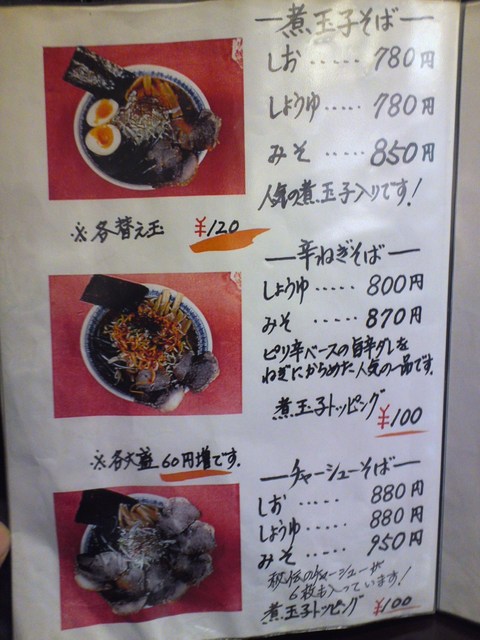 煮玉子そば
しお ..... 780円
しょうゆ ..... 780円
みそ ..... 850円
人気の煮玉子入りです!
※各替え玉 ¥120
辛ねぎそば
しょうゆ ... 800円
みそ ..... 870円
ピリ辛ベースの旨辛ダレを
ねぎにからめた人気の一品です。
煮玉子トッピング ¥100
※各大盛60円増です。
チャーシューそば
しお ..... 880円
しょうゆ .... 880円
みそ ..... 950円
秘伝のチャーシューが
6枚も入っています!
煮玉子トッピング ¥100